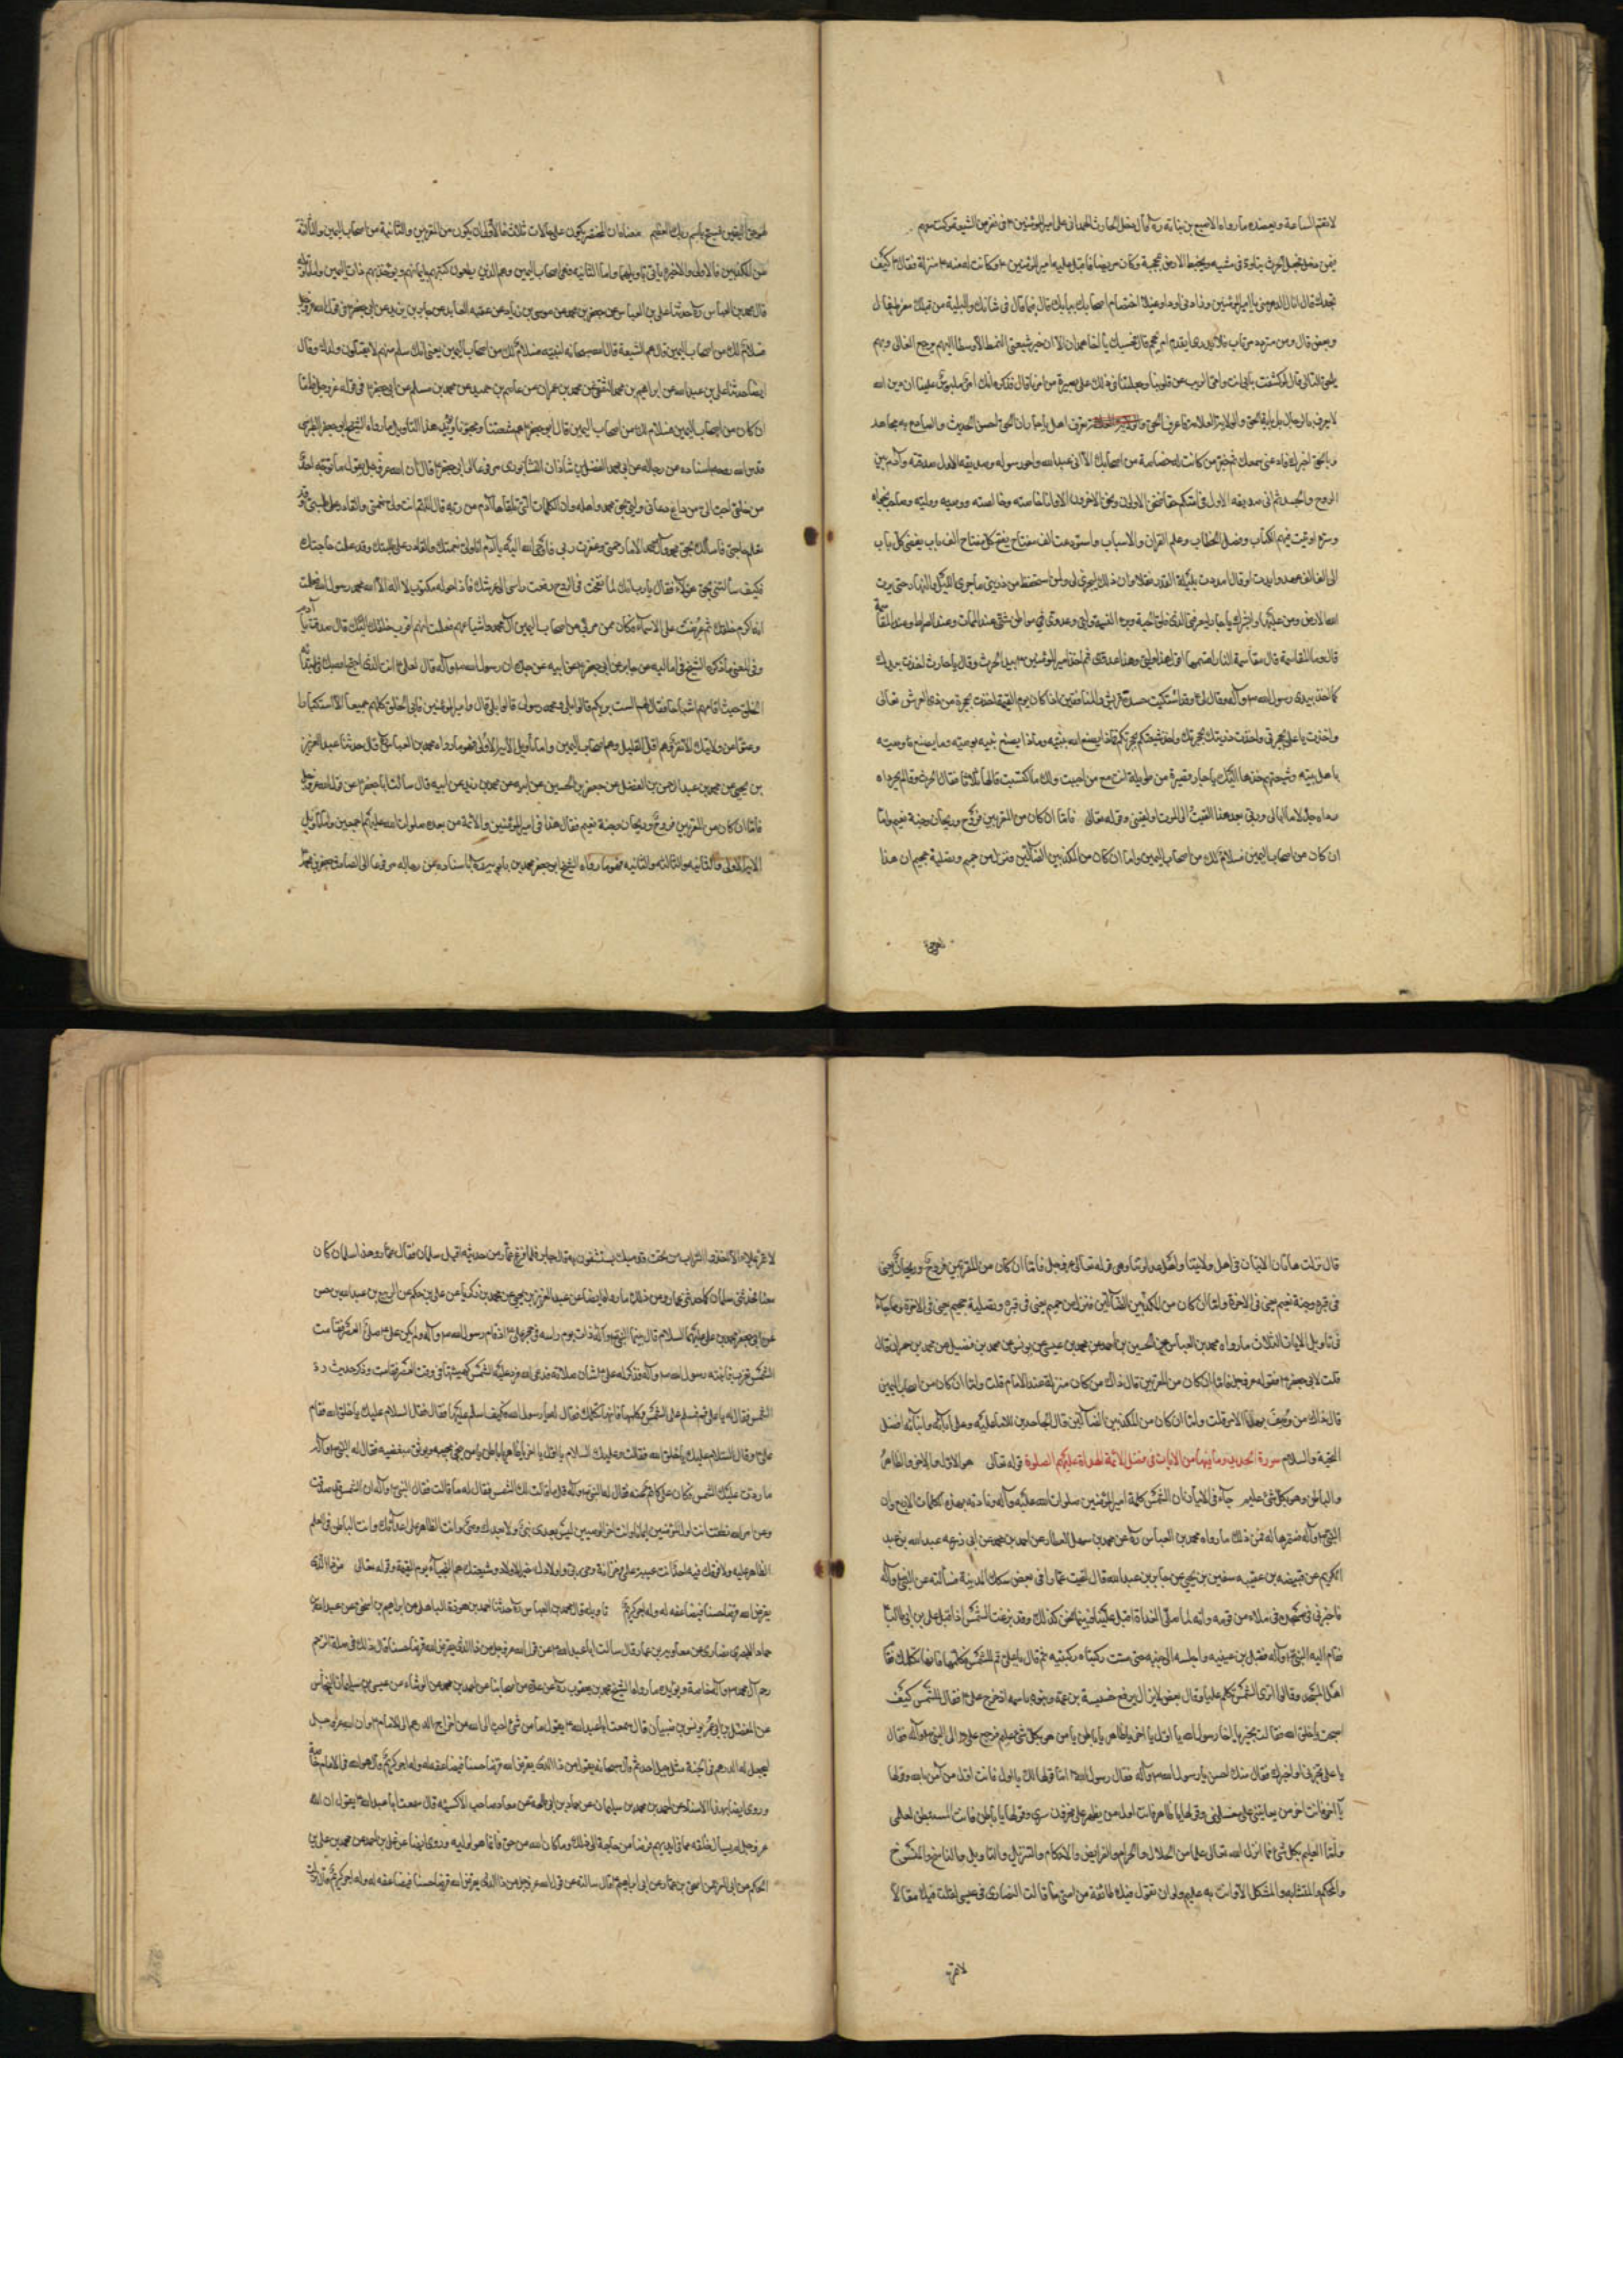 لا تقتم الساعة ويعضده ما رواه الاصبغ بن نباته ره قال دخل الحارث الهمدانى على امير المؤمنين ع فى نفر من الشيعة وكنت فيهم
فيمن دخل فجعل الحرث يتاود فى مشيه ويخبط الارض بمحجنة وكان مريضا فاقبل عليه امير المؤمنين ع وكانت له منه منزلة فقال ع كيف
تجدك قال نال الدهر منى يا امير المؤمنين وزادنى اوداء وغليلا اختصام اصحابك ببابك قال فيما قال فى شانك والبلية من قبلك مفرط غال
ومبغض قال ومن متردد مرتاب فلا يدرى ايقدم ام يحجم قال فحسبك يا اخا همدان الا ان خير شيعتى النمط الاوسط اليهم يرجع الغالى وبهم
يلحق التالى قال لو كشفت بابى انت وامى الريب عن قلوبنا وجعلتنا فى ذلك على بصيرة من امرنا قال فذكر انك امرؤ ملبوس عليك ان دين الله
لا يعرف بالرجال بل باية الحق والاية العلامة فاعرف الحق تعرف اهله يا حار ان الحق احسن الحديث والصادع به مجاهد
وبالحق اخبرك فارعنى سمعك ثم خبر من كانت له حصاصة من اصحابك الا انى عبد الله واخو رسوله وصديقه الاول صدقته وآدم بين
الروح والجسد ثم انى صديقه الاول فى امتكم حقا فنحن الاولون ونحن الاخرون الا وانا خاصته وخالصته ووصيه ووليه وصاحب نجواه
وسره اوتيت فهم الكتاب وفصل الخطاب وعلم القران والاسباب واستودعت الف مفتاح يفتح كل مفتاح الف باب يفضى كل باب
الى الف الف عهد وايدت او قال امددت بليلة القدر نفلا وان ذلك ليجرى لى ولمن استحفظ من ذريتى ما جرى الليل والنهار حتى يرث
الله الارض ومن عليها وابشرك يا حار ليعرفنى الذى فلق الحبة وبرء النسمة وليى وعدوى فى مواطن شتى عند الممات وعند الصراط وعند المقاسمة
قال وما المقاسمة قال مقاسمة النار اقسمها اقول هذا وليى وهذا عدوى ثم اخذ امير المؤمنين ع بيد الحرث وقال يا حارث اخذت بيدك
كما اخذ بيدى رسول الله ص وآله وقال لى وقد اشتكيت حسدة قريش والمنافقين اذا كان يوم القيمة اخذت بحجزة من ذى العرش تعالى
واخذت يا على بحجزتى واخذت ذريتك بحجزتك واخذ شيعتكم بحجزتكم فماذا يصنع الله بنبيه وماذا يصنع نبيه بوصيه وما يصنع وصيه
باهل بيته وشيعتهم خذها اليك يا حار قصيرة من طويلة انت مع من احببت ولك ما اكتسبت قالها ثلاثا فقال الحرث وقام يجر رداه
ما ابالى وربى بعد هذا القيت الى الموت او لقينى وقوله تعالى فاما ان كان من المقربين فروح وريحان وجنة نعيم واما
ان كان من اصحاب اليمين فسلام لك من اصحاب اليمين واما ان كان من المكذبين الضالين فنزل من حميم وتصلية جحيم ان هذا
لهو حق
لهو حق اليقين فسبح باسم ربك العظيم معناه ان المحتضر يكون على حالات ثلاث فالاول ان يكون من المقربين والثانية من اصحاب اليمين والثالثة
من المكذبين فالاولى والاخيرة ياتى تاويلهما واما الثانيه فهى اصحاب اليمين وهم الذين يعطون كتبهم بايمانهم ويؤخذ بهم ذات اليمين واما تاويله
قال محمد بن العباس ره حدثنا على بن العباس عن جعفر بن محمد عن موسى بن زياد عن عقبه العابد عن جابر بن يزيد عن ابى جعفر ع فى قوله عز وجل
فسلام لك من اصحاب اليمين قال هم الشيعة قال الله سبحانه لنبيه فسلام لك من اصحاب اليمين يعنى انك تسلم منهم لا يقتلون ولدك وقال
ايضا حدثنا على بن عبد الله عن ابراهيم بن محمد الثقفى عن محمد بن عمران عن عاصم بن حميد عن محمد بن مسلم عن ابى جعفر ع فى قوله عز وجل فاما
ان كان من اصحاب اليمين فسلام لك من اصحاب اليمين قال ابو جعفر ع هم شيعتنا ومحبونا ويؤيد هذا التاويل ما رواه الشيخ ابو جعفر الطوسى
قدس الله روحه باسناده عن رجاله عن ابى محمد الفضل بن شاذان النيشابورى مرفوعا الى ابى جعفر ع قال ان الله عز وجل يقول ما توجه احد
من خلقى احب الى من داع دعانى بحق محمد واهله وان الكلمات التى تلقاها آدم من ربه قال اللهم انت ولى نعمتى والقادر على طلبتى وقد
تعلم حاجتى فاسألك بحق محمد وآل محمد الا ما رحمتى وغفرت زلتى فاوحى الله اليه يا آدم انا ولى نعمتك والقادر على طلبتك وقد علمت حاجتك
فكيف سألتنى بحق هؤلاء فقال يا رب انك لما نفخت فى الروح رفعت راسى الى عرشك فاذا حوله مكتوب لا اله الا الله محمد رسول الله فعلمت
انه اكرم خلقك ثم عرضت على الاسماء فكان ممن مر بى من اصحاب اليمين آل محمد واشياعهم فعلمت انهم اقرب خلقك اليك قال صدقت يا آدم
وفى المعنى ما ذكره الشيخ فى اماليه عن جابر عن ابى جعفر ع عن ابيه عن جده ان رسول الله ص وآله قال لعلى ع انت الذى احتج الله بك فى ابتداء
الخلق حيث اقامهم اشباحا فقال لهم الست بربكم قالوا بلى قال ومحمد رسولى قالوا بلى قال وعلى امير المؤمنين فابى الخلق كلهم جميعا الا استكبارا
وعتوا عن ولايتك الا نفر قليل وهم اقل القليل وهم اصحاب اليمين واما تأويل الاية الاولى فهو ما رواه محمد بن العباس ره قال حدثنا عبد العزيز
بن يحيى عن محمد بن عبد الرحمن بن الفضل عن جعفر بن الحسين عن ابيه عن محمد بن زيد عن ابيه قال سالت ابا جعفر ع عن قوله عز وجل
فاما ان كان من المقربين فروح وريحان وجنة نعيم فقال هذا فى امير المؤمنين والائمة من بعده صلوات الله عليهم اجمعين واما تأويل
الاية الاولى والثانيه والثالثه فهو ما رواه الشيخ ابو جعفر محمد بن بابويه ره باسناده عن رجاله مرفوعا الى الصادق جعفر بن محمد ع
قال نزلت هاتان الايتان فى اهل ولايتنا واهل عداوتنا وهى قوله تعالى عز وجل فاما ان كان من المقربين فروح وريحان يعنى
فى قبره وجنة نعيم يعنى فى الاخرة واما ان كان من المكذبين الضالين فنزل من حميم يعنى فى قبره وتصلية جحيم يعنى فى الاخرة وجاء
فى تاويل الايات الثلاث ما رواه محمد بن العباس عن الحسين بن احمد عن محمد بن عيسى عن يونس عن محمد بن فضيل عن محمد بن حمران قال
قلت لابى جعفر ع فقوله عز وجل فاما ان كان من المقربين قال ذاك من كان منزلة عند الامام قلت واما ان كان من اصحاب اليمين
قال ذاك من وصف بهذا الامر قلت واما ان كان من المكذبين الضالين قال الجاحدين للامام عليه وعلى آبائه وابنائه افضل
التحية والسلام سورة الحديد وما فيها من الايات فى فضل الائمة الهداة عليهم الصلوة قوله تعالى هو الاول والاخر والظاهر
والباطن وهو بكل شئ عليم جاء فى الايات ان الشمس كلمة امير المؤمنين صلوات الله عليه وآله ونادته بهذه الكلمات الاربع وان
النبى ص وآله فسرها له فمن ذلك ما رواه محمد بن العباس ره عن محمد بن سهل العطار عن احمد بن محمد عن ابى زرعه عبد الله بن عبد
الكريم عن قبيصه بن عقبه سفين بن يحيى عن جابر بن عبد الله قال لقيت عمارا فى بعض سكك المدينة فسألته عن النبى ص وآله
فاخبر فى فى مسجده فى ملاء من قومه وانه لما صلى الغداة اقبل علينا فبينا نحن كذلك وقد بزغت الشمس اذ اقبل على بن ابى طالب ع
فقام اليه النبى ص وآله فقبل بين عينيه واجلسه الى جنبه حتى مست ركبتاه ركبتيه ثم قال يا على قم للشمس فكلمها فانها تكلمك فقام
اهل المسجد وقالوا اترى الشمس تكلم عليا وقال بعض لا يزال يرفع خسيسة بن عمه وينوه باسمه اذ خرج على ع فقال للشمس كيف
اصبحت يا خلق الله فقالت بخير يا اخا رسول الله يا اول يا اخر يا ظاهر يا باطن يا من هو بكل شئ عليم فرجع على ع الى النبى ص وآله فقال
يا على تخبرنى او اخبرك فقال منك احسن يا رسول الله ص وآله فقال رسول الله ص اما قولها لك يا اول فانت اول من آمن بالله وقولها
يا آخر فانت آخر من يعاينى على مغسلى وقولها يا ظاهر فانت اول من يظهر على مخزون سرى وقولها يا باطن فانت المستبطن لعلمى
واما العليم بكل شئ فما انزل الله تعالى علما من الحلال والحرام والفرايض والاحكام والتنزيل والتاويل والناسخ والمنسوخ
والمحكم والمتشابه والمشكل الا وانت به عليم ولولا ان تقول فيك طائفة من امتى ما قالت النصارى فى عيسى لقلت فيك مقالا
لا تمر
لا تمر بملاء الا اخذوا التراب من تحت قدميك يستشفون به قال جابر فلما فرغ عمار من حديثه اقبل سلمان فقال عمار وهذا سلمان كان
معنا فحدثنى سلمان كما حدثنى عمار ومن ذلك ما رواه ايضا عن عبد العزيز بن يحيى عن محمد بن زكريا عن على بن حكم عن الربيع بن عبد الله بن حسن
عن ابى جعفر محمد بن على عليهما السلام قال بينا النبى ص وآله ذات يوم راسه فى حجر على ع اذ نام رسول الله ص وآله ولم يكن على ع صلى العصر فقامت
الشمس تغرب فانتبه رسول الله ص وآله فذكر له على ع شان صلاته فدعى الله فرد عليه الشمس كهيئتها فى وقت العصر فقامت وذكر حديث رد
الشمس فقال له يا على قم فسلم على الشمس وكلمها فانها تكلمك فقال له يا رسول الله كيف اسلم عليها فقال قل السلام عليك يا خلق الله فقام
على ع وقال السلام عليك يا خلق الله فقالت وعليك السلام يا اول يا اخر يا ظاهر يا باطن يا من ينجى محبيه ويوثق مبغضيه فقال له النبى ص وآله
ما ردت عليك الشمس وكان على كاتما عنه فقال له النبى ص وآله قل ما قالت لك الشمس فقال له ما قالت فقال النبى ص وآله ان الشمس قد صدقت
وعن امر الله نطقت انت اول المؤمنين ايمانا وانت اخر الوصيين ليس بعدى نبى ولا بعدك وصى وانت الظاهر على اعدائك وانت الباطن فى العلم
الظاهر عليه ولا فوقك فيه احد انت عيبة علمى وخزانة وحى ربى واولادك خير الاولاد وشيعتك هم النجباء يوم القيمة وقوله تعالى من ذا الذى
يقرض الله قرضا حسنا فيضاعفه له وله اجر كريم تاويله قال محمد بن العباس ره حدثنا احمد بن هوذة الباهلى عن ابراهيم بن اسحق عن عبد الله بن
حماد الانصارى عن معاوية بن عمار قال سالت ابا عبد الله ع عن قول الله عز وجل من ذا الذى يقرض الله قرضا حسنا قال ذاك فى صلة الرحم
رحم آل محمد ص وآله خاصة ويؤيده ما رواه الشيخ محمد بن يعقوب ره عن عدة من اصحابنا عن احمد بن محمد عن الوشاء عن عيسى بن سليمان النحاس
عن المفضل بن ابى عمر يونس بن ظبيان قال سمعت ابا عبد الله ع يقول ما من شئ احب الى الله من اخراج الدرهم الى الامام ع وان الله عز وجل
ليجعل له الدرهم فى الجنة مثل جبل احد ثم قال سبحانه يقول من ذا الذى يقرض الله قرضا حسنا فيضاعفه له وله اجر كريم قال هو والله فى الامام خاصة
وروى ايضا بهذا الاسناد عن احمد بن محمد بن سليمان عن حماد بن ابى طلحة عن معاذ صاحب الاكسيه قال سمعت ابا عبد الله ع يقول ان الله
عز وجل لم يسال خلقه مما فى ايديهم قرضا من حاجة الى ذلك وما كان لله من حق فانما هو لوليه وروى ايضا عن على بن احمد عن محمد بن على بن
الحكم عن ابى المعزا عن اسحق بن عمار عن ابى ابراهيم ع قال سالته عن قول الله عز وجل من ذا الذى يقرض الله قرضا حسنا فيضاعفه له وله اجر كريم قال نزلت